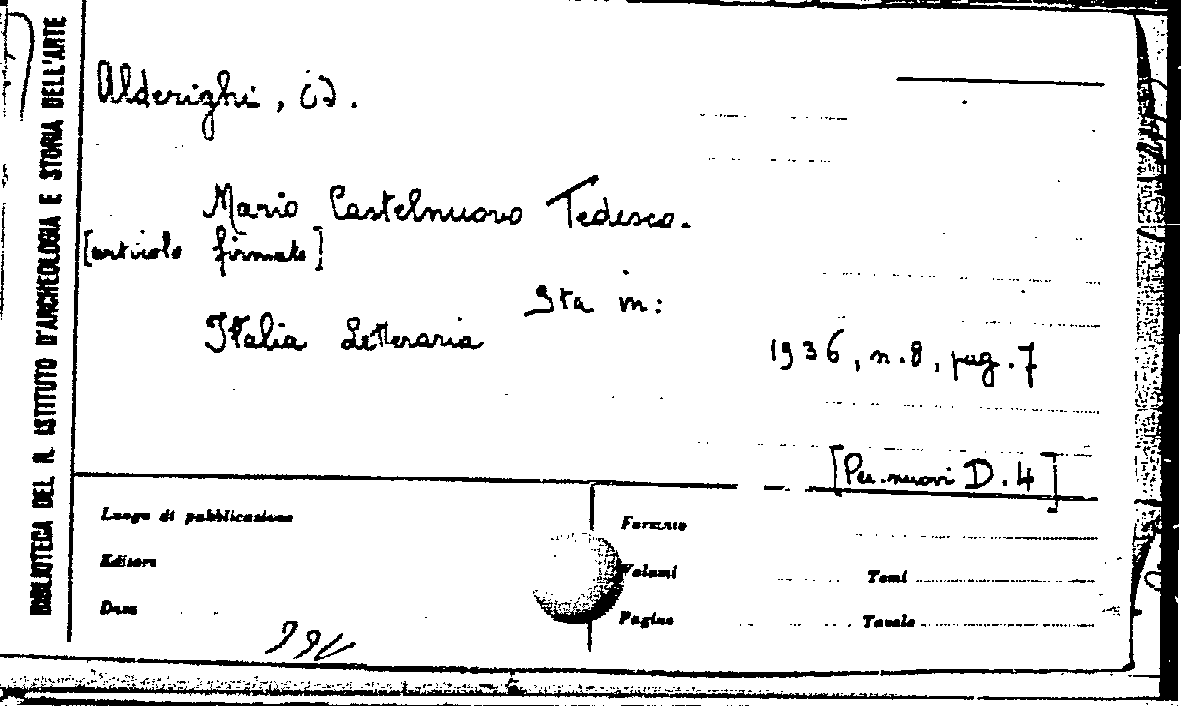 BIBLIOTECA DEL R. ISTITUTO D'ARCHEOLOGIA E STORIA DELL'ARTE
Alderighi, D.
Mario Castelnuovo Tedesco.
[articolo firmato]
Sta in:
Italia Letteraria
1936, n. 8, pag. 7
[Per. nuovi D. 4]
Luogo di pubblicazione
Formato
Editore
Volumi
Tomi
Data
Pagine
Tavole